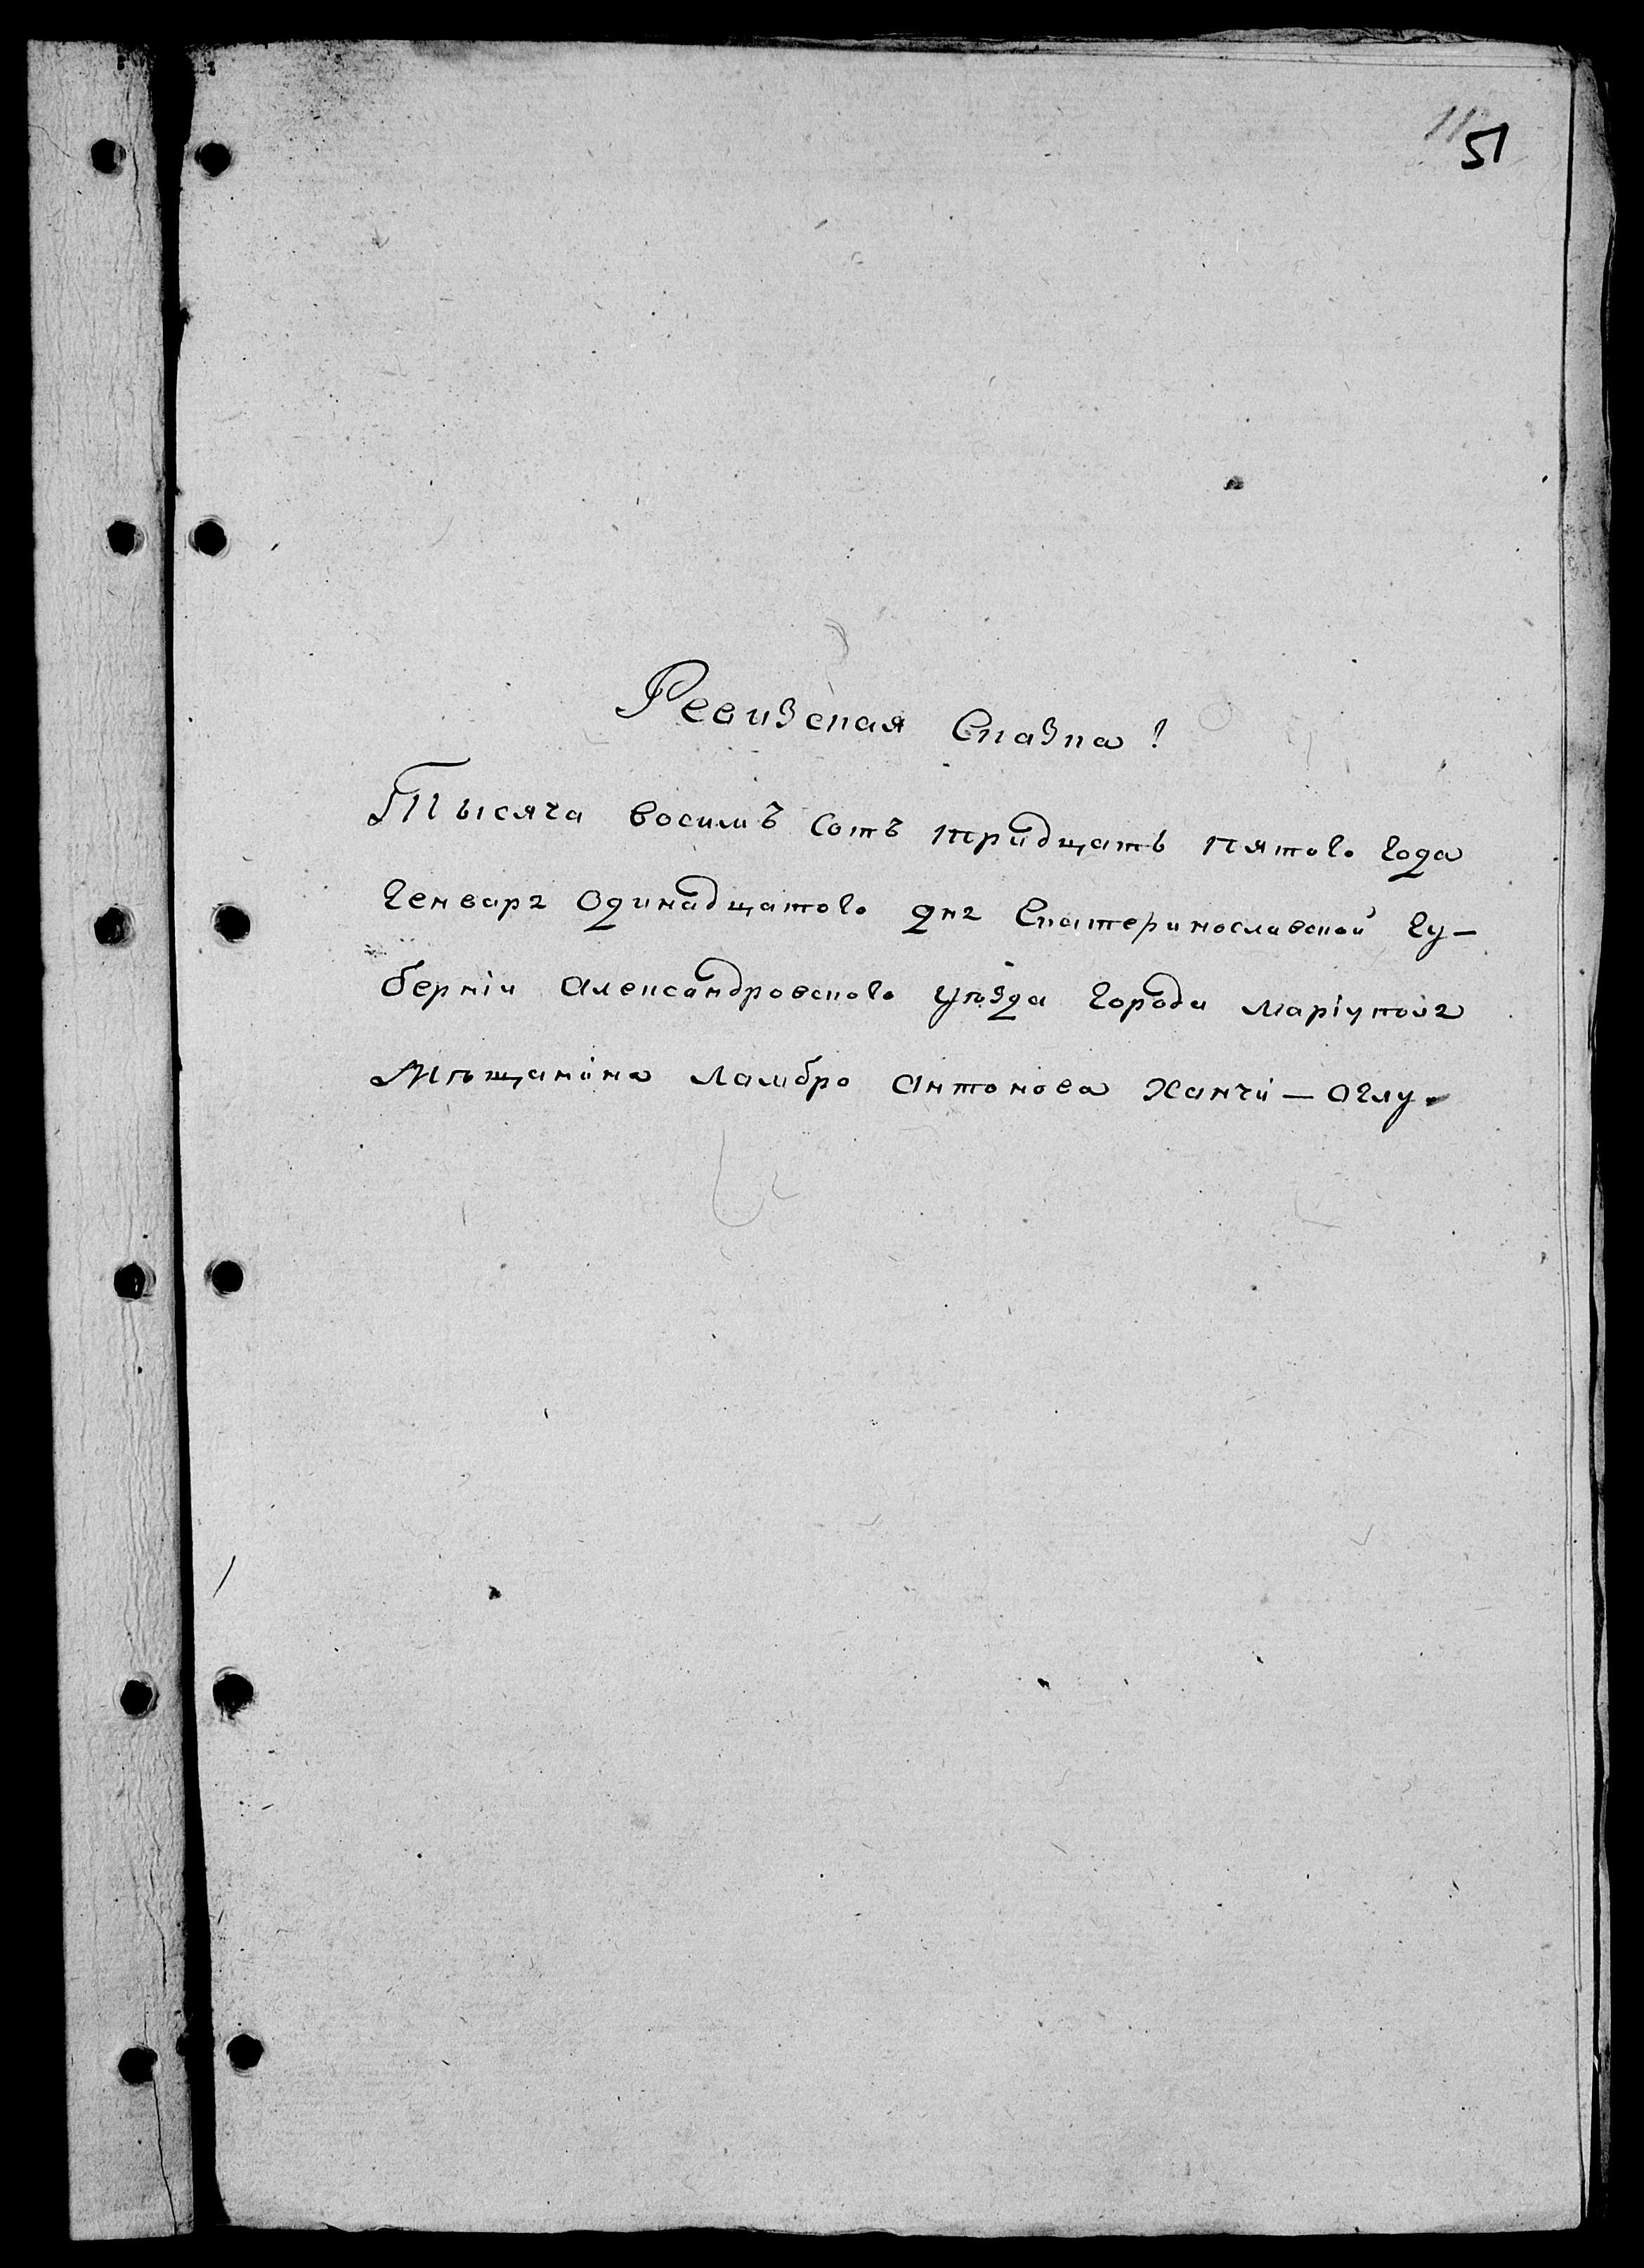 51
Ревизская Сказка!
Тысяча восимъ Сотъ тридцать пятого года
Генваря Одинадцатого дня Екатеринославской Гу-
берніи Александровского уѣзда Города Маріуполя
Мѣщанина Ламбро Антонова Ханчи-Оглу.